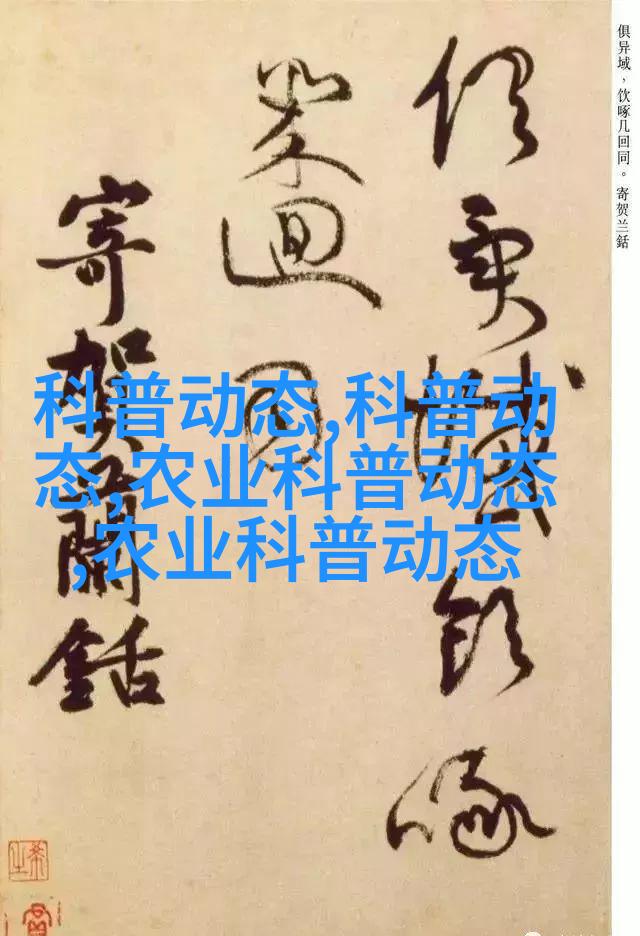 俱异域，饮啄几回同。寄贺兰銛
俱異域飲啄
幾迴同
寄賀蘭銛
科普动态,科普动
态,农业科普动态
,农业科普动态